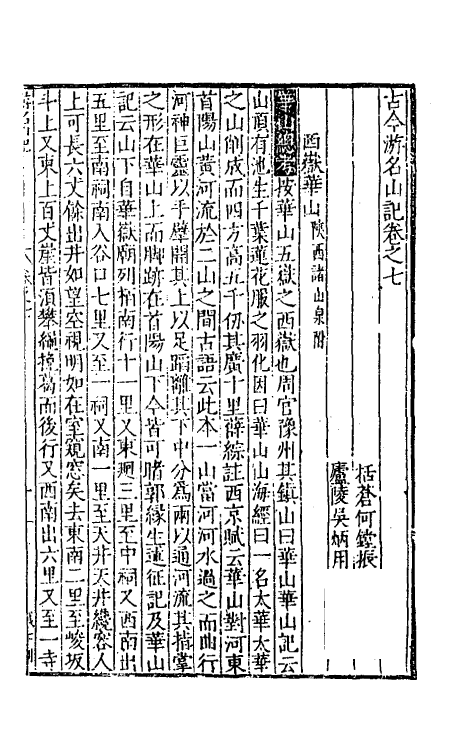 古今游名山記卷之七
括蒼何鏜振
廬陵吳炳用
西嶽華山 陝西諸山泉附
華山總考 按華山五嶽之西嶽也周官豫州其鎮山曰華山華山記云
山頂有池生千葉蓮花服之羽化因曰華山山海經曰一名太華太華
之山削成而四方高五千仞其廣十里薛綜註西京賦云華山對河東
首陽山黃河流於二山之間古語云此本一山當河河水過之而曲行
河神巨靈以手擘開其上以足蹈離其下中分爲兩以通河流其指掌
之形在華山上而脚跡在首陽山下今皆可睹郭緣生述征記及華山
記云山下自華嶽廟列栢南行十一里又東廻三里至中祠又西南出
五里至南祠南入谷口七里又至一祠又南一里至天井天井纔容人
上可長六丈餘出井如望空視明如在室窺窓矣去東南二里至峻坂
斗上又東上百丈崖皆須攀繩挽葛而後行又西南出六里又至一寺